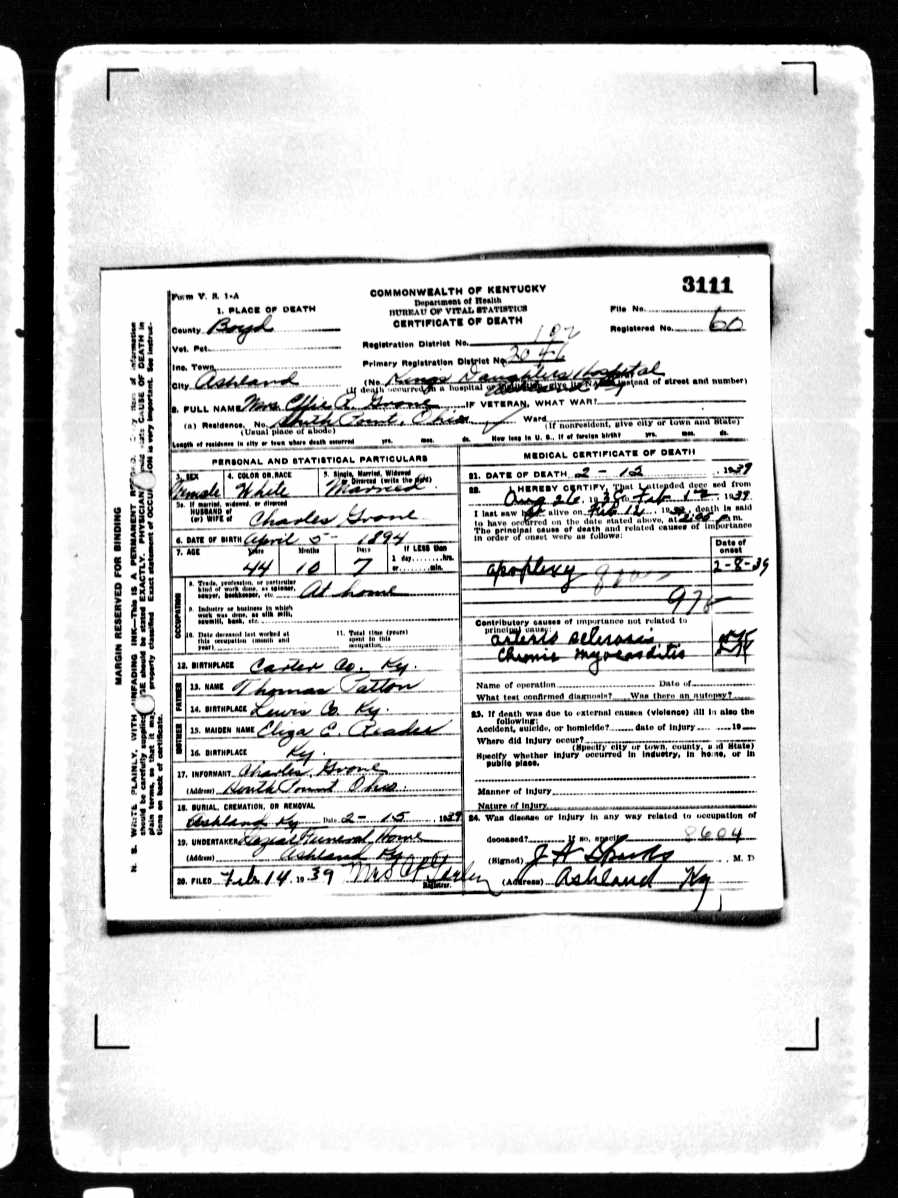 3111
Form V. S. 1-A
COMMONWEALTH OF KENTUCKY
Department of Health
BUREAU OF VITAL STATISTICS
CERTIFICATE OF DEATH
File No.
Registered No. 60
1. PLACE OF DEATH
County Boyd
Vot. Pct.
Inc. Town
City Ashland
Registration District No.
Primary Registration District No.
(No. Kings Daughters Hospital
(If death occurred in a hospital or institution, give its NAME instead of street and number)
2. FULL NAME Mrs. Effie IF VETERAN, WHAT WAR?
(a) Residence. No. South Point, Ohio Ward
(Usual place of abode) (If nonresident, give city or town and State)
Length of residence in city or town where death occurred yrs. mos. ds. How long in U. S., if of foreign birth? yrs. mos. ds.
PERSONAL AND STATISTICAL PARTICULARS
3. SEX Female
4. COLOR OR RACE White
5. Single, Married, Widowed
Divorced (write the word) Married
5a. If married, widowed, or divorced
HUSBAND of
(or) WIFE of Charles
6. DATE OF BIRTH April 5- 1894
7. AGE Years Months Days If LESS than
44 10 7 1 day hrs.
or min.
OCCUPATION
8. Trade, profession, or particular
kind of work done, as spinner,
sawyer, bookkeeper, etc. At home
9. Industry or business in which
work was done, as silk mill,
sawmill, bank, etc.
10. Date deceased last worked at
this occupation (month and
year)
11. Total time (years)
spent in this
occupation
12. BIRTHPLACE Carter Co. Ky.
FATHER
13. NAME Thomas Patton
14. BIRTHPLACE Lewis Co. Ky.
MOTHER
15. MAIDEN NAME Eliza E. Reader
16. BIRTHPLACE Ky.
17. INFORMANT Charles
(Address) South Point Ohio
18. BURIAL, CREMATION, OR REMOVAL
Ashland Ky Date 2-15, 1939
19. UNDERTAKER Funeral Home
(Address) Ashland Ky
20. FILED Feb 14 1939 Mrs
Registrar.
MEDICAL CERTIFICATE OF DEATH
21. DATE OF DEATH 2-12, 1939
22. I HEREBY CERTIFY, That I attended deceased from
Aug 26, 1938 to Feb 12, 1939
I last saw alive on Feb 12, 1939, death is said
to have occurred on the date stated above, at m.
The principal cause of death and related causes of importance
in order of onset were as follows:
Date of
onset
apoplexy 2-8-39
Contributory causes of importance not related to
principal cause:
arterio sclerosis
Chronic myocarditis
Name of operation Date of
What test confirmed diagnosis? Was there an autopsy?
23. If death was due to external causes (violence) fill in also the
following:
Accident, suicide, or homicide? date of injury 19
Where did injury occur?
(Specify city or town, county, and State)
Specify whether injury occurred in industry, in home, or in
public place.
Manner of injury
Nature of injury
24. Was disease or injury in any way related to occupation of
deceased? If so, specify 8604
(Signed) J H Sparks, M. D
(Address) Ashland Ky
MARGIN RESERVED FOR BINDING